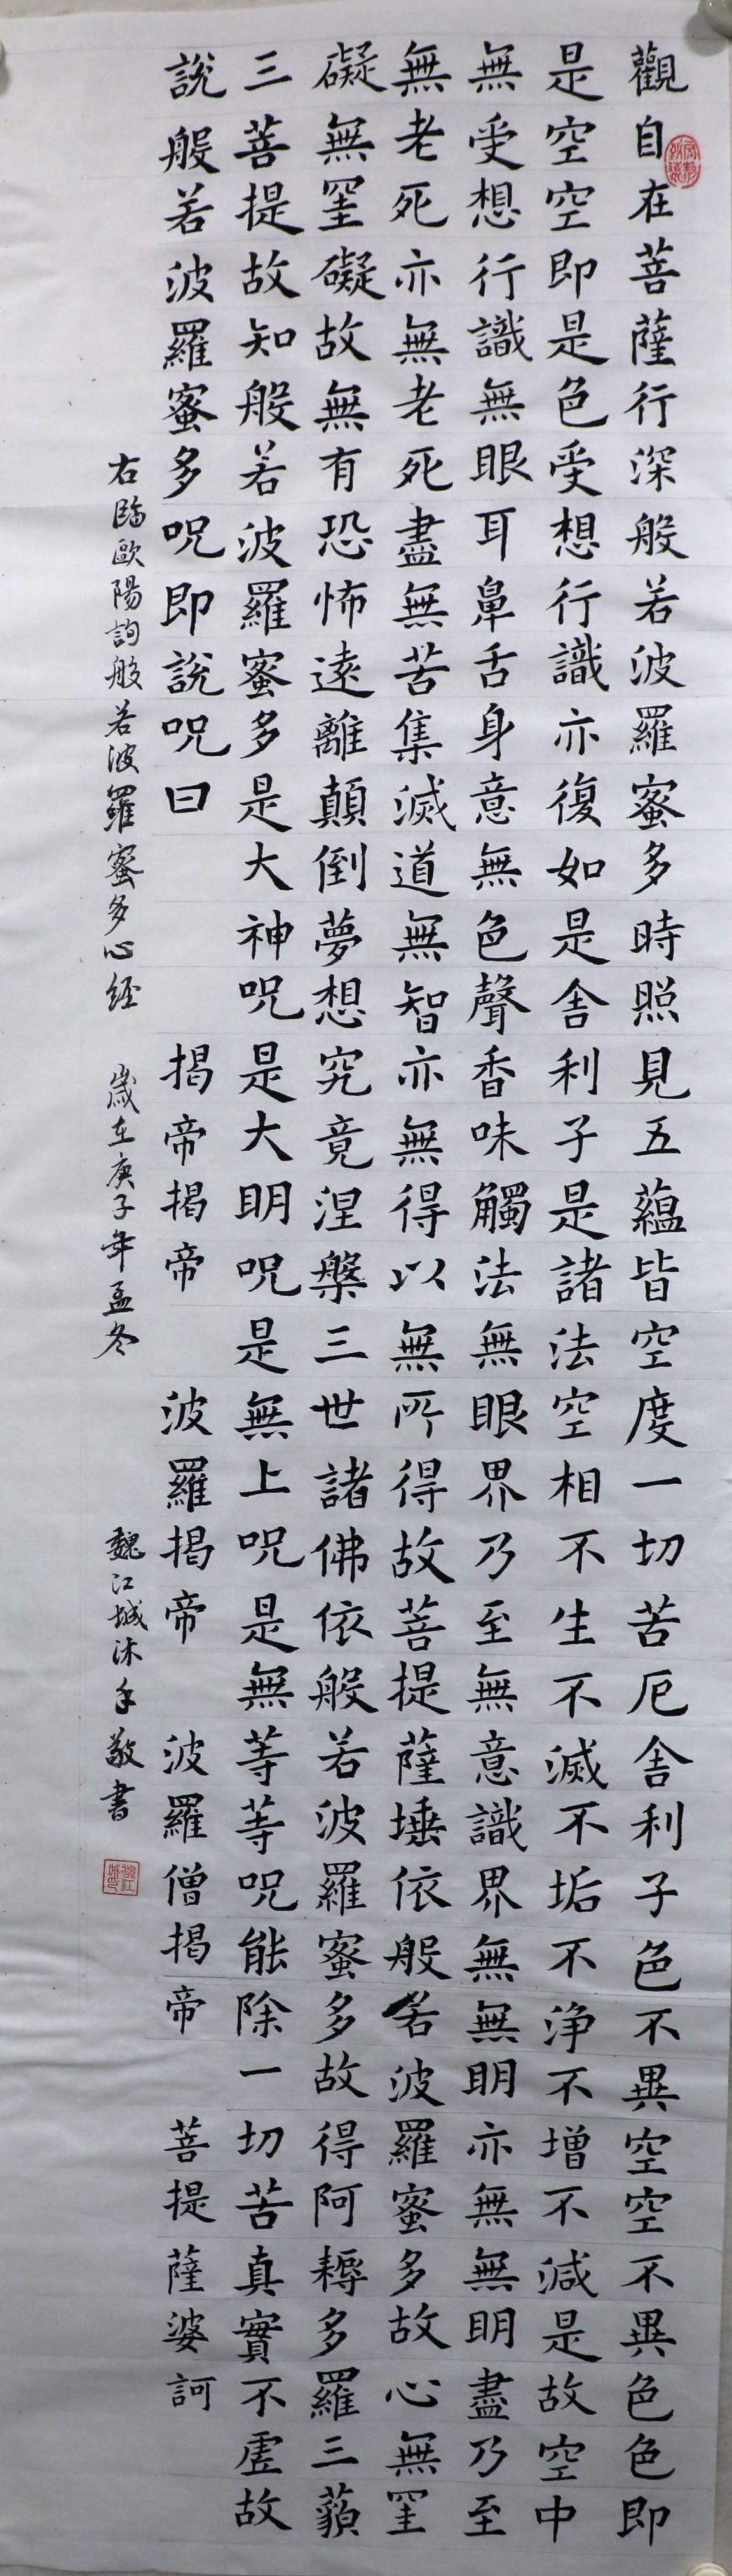 觀自在菩薩行深般若波羅蜜多時照見五蘊皆空度一切苦厄舍利子色不異空空不異色色即
是空空即是色受想行識亦復如是舍利子是諸法空相不生不滅不垢不淨不增不減是故空中
無受想行識無眼耳鼻舌身意無色聲香味觸法無眼界乃至無意識界無無明亦無無明盡乃至
無老死亦無老死盡無苦集滅道無智亦無得以無所得故菩提薩埵依般若波羅蜜多故心無罣
礙無罣礙故無有恐怖遠離顛倒夢想究竟涅槃三世諸佛依般若波羅蜜多故得阿耨多羅三藐
三菩提故知般若波羅蜜多是大神呪是大明呪是無上呪是無等等呪能除一切苦真實不虛故
說般若波羅蜜多呪即說呪曰 揭帝揭帝 波羅揭帝 波羅僧揭帝 菩提薩婆訶
右臨歐陽詢般若波羅蜜多心經 歲在庚子年孟冬 魏江城沐手敬書